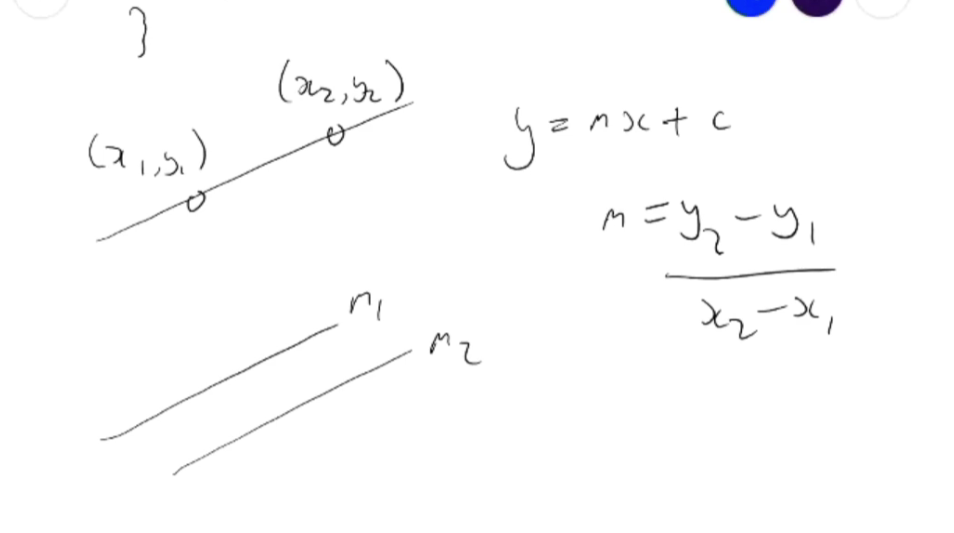 }
(x₂,y₂)
(x₁,y₁)
y = mx + c
m = y₂ - y₁
x₂ - x₁
m₁
m₂